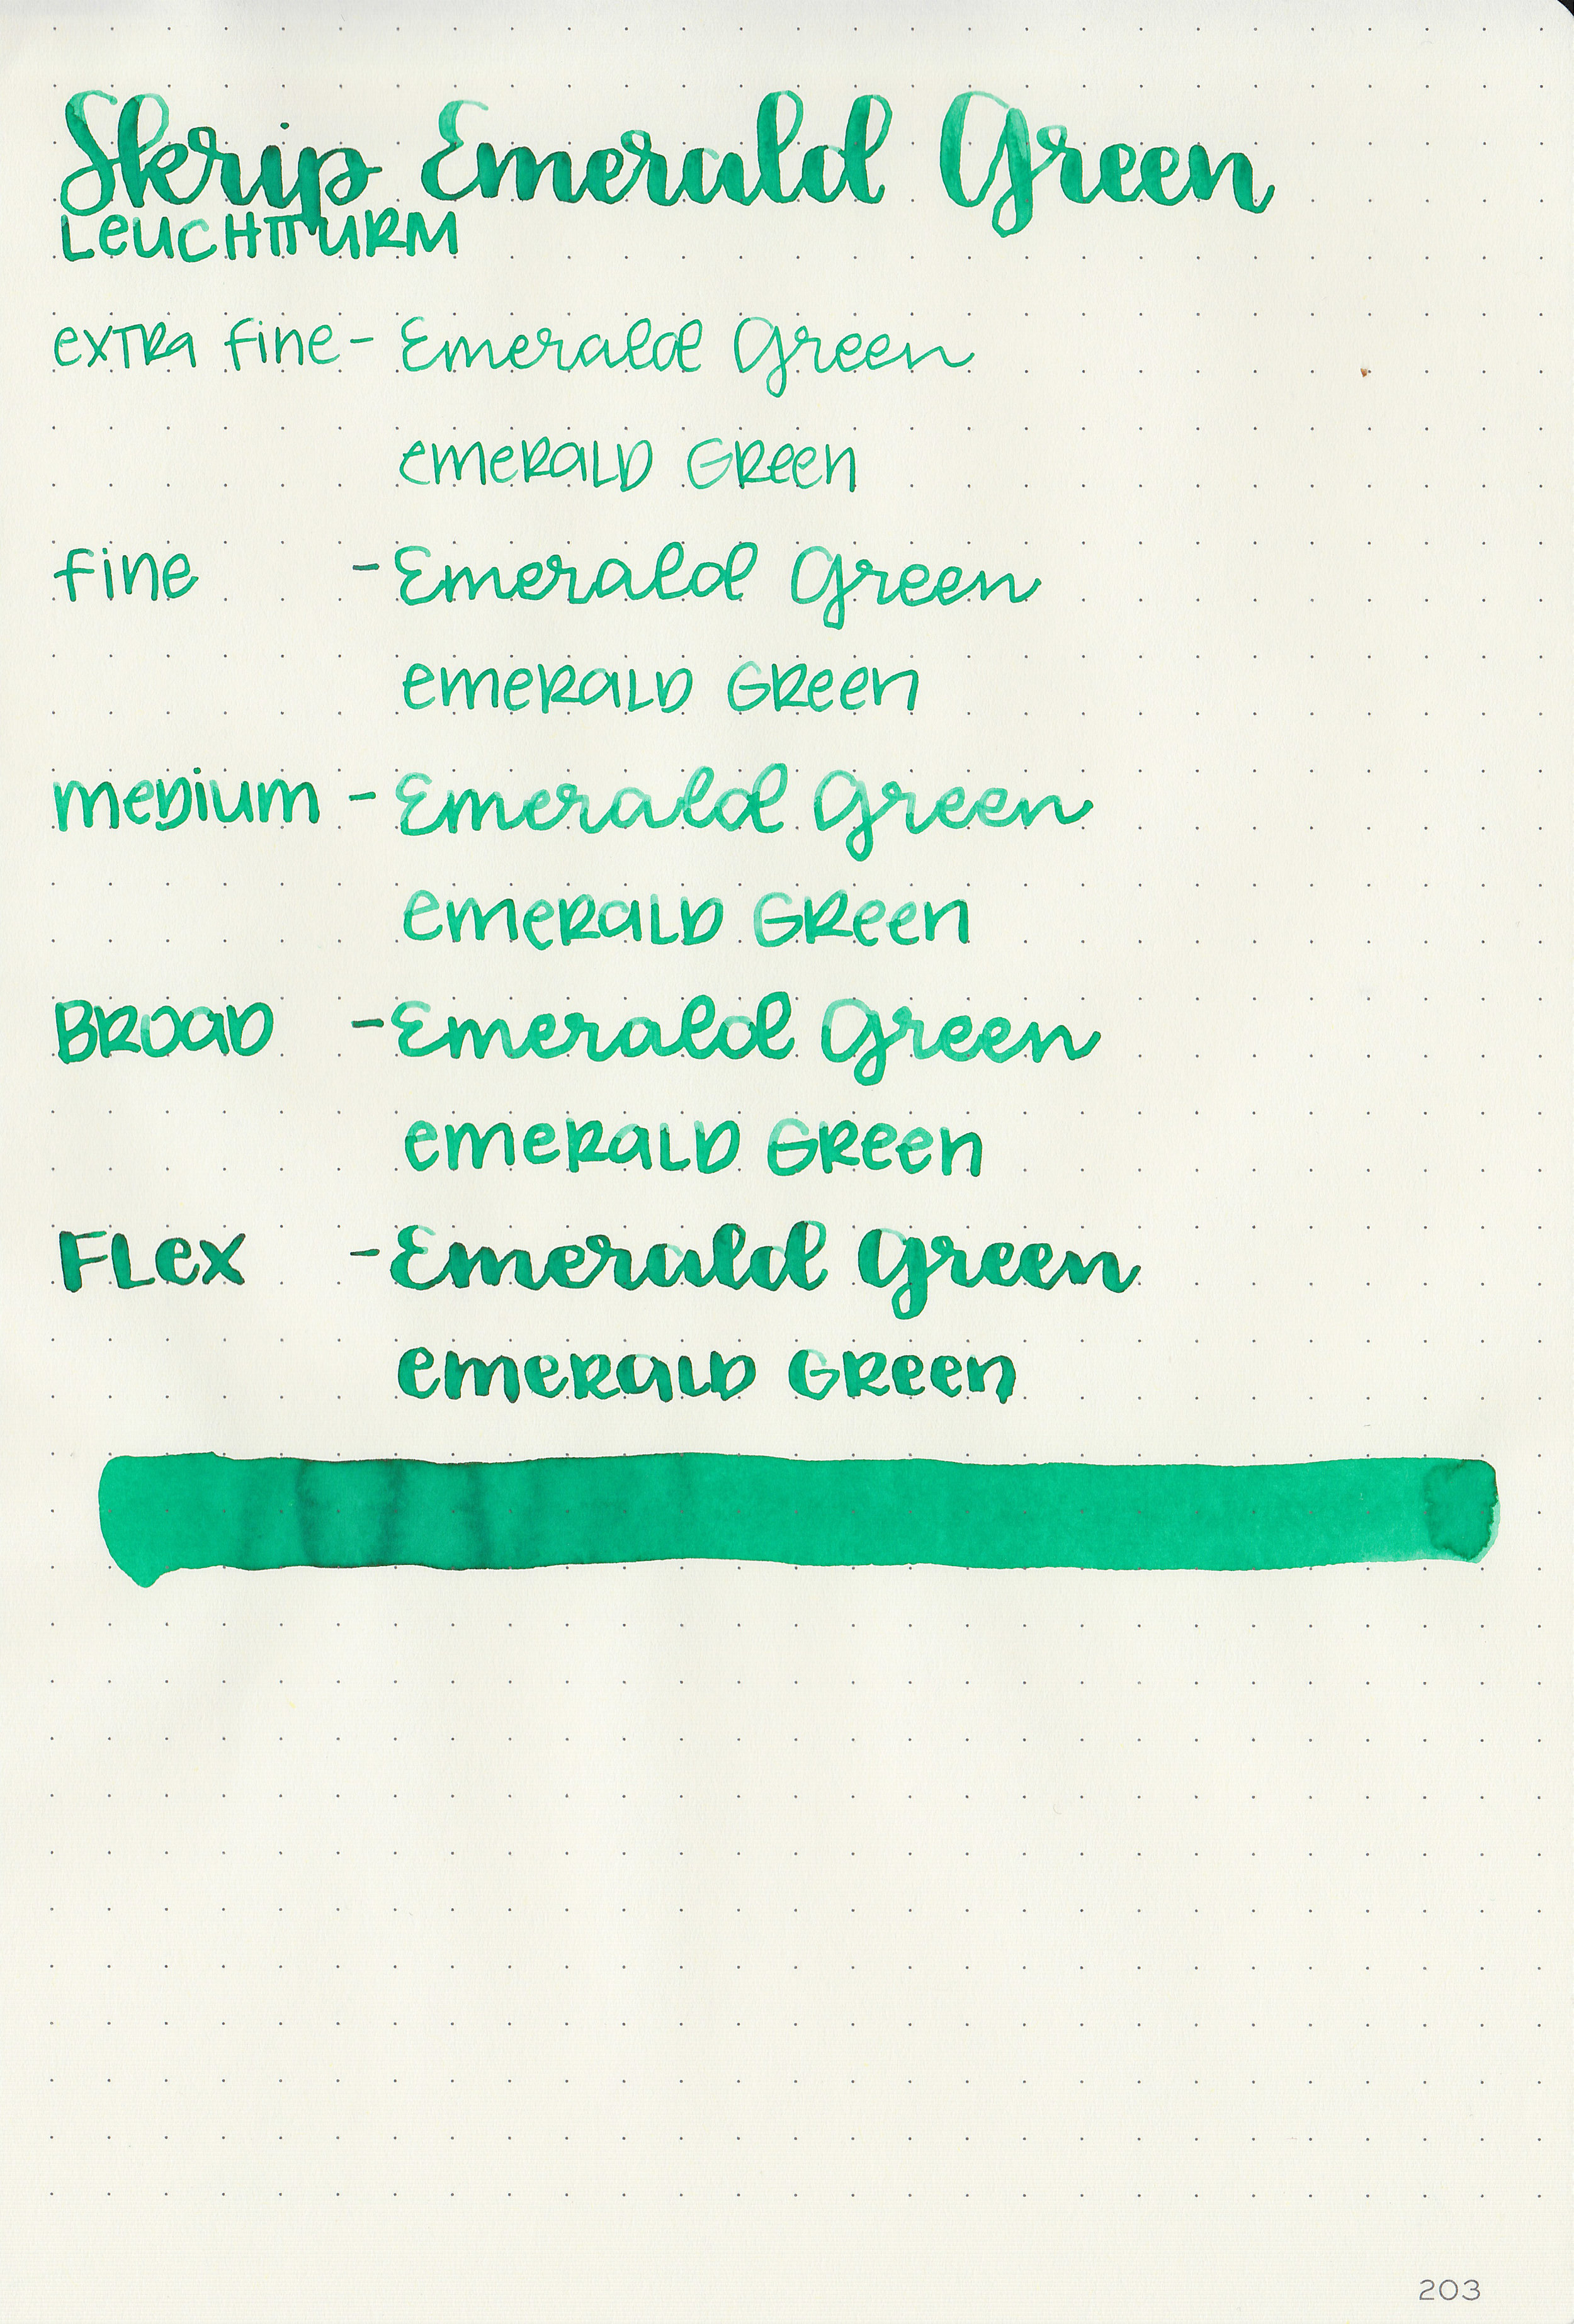 Skrip Emerald Green
LeuchTTURM
exTRa fine - Emerald Green
emeRaLD GReen
fine - Emerald Green
emeRaLD GReen
meDium - Emerald Green
emeRaLD GReen
BRoaD - Emerald Green
emeRaLD GReen
FLex - Emerald Green
emeRaLD GReen
203